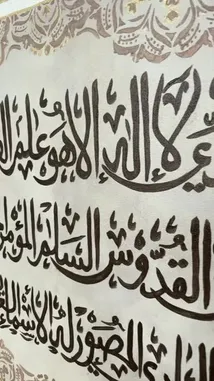 لَا إِلَٰهَ إِلَّا هُوَ عَٰلِمُ
الْقُدُّوسُ السَّلَٰمُ الْمُؤْمِ
الْمُصَوِّرُ لَهُ الْأَسْمَاءُ